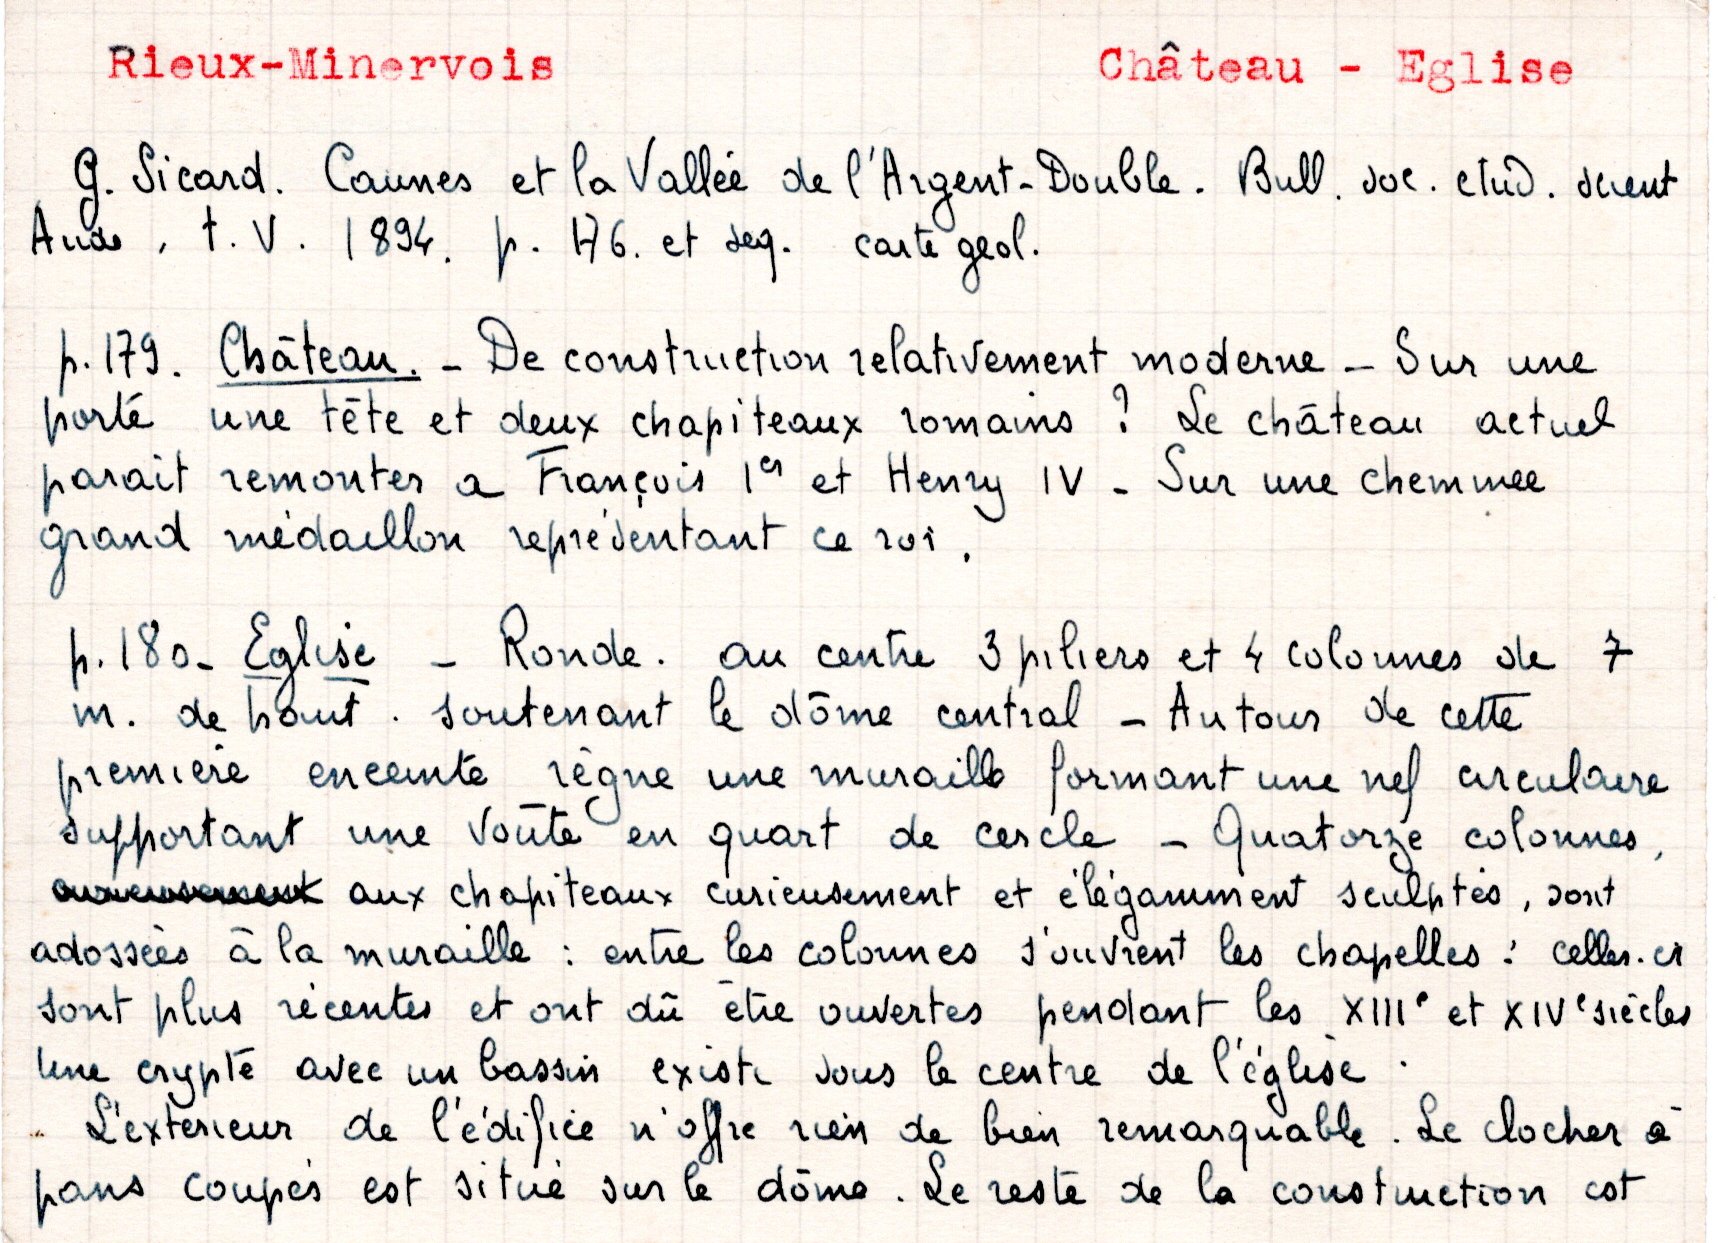 Rieux-Minervois Château - Eglise
G. Sicard. Caunes et la Vallée de l'Argent-Double. Bull. soc. étud. scient
Aude, t. V. 1894. p. 176. et seq. carte geol.
p. 179. Château. - De construction relativement moderne - Sur une
porte une tête et deux chapiteaux romains ? Le château actuel
parait remonter a François 1er et Henry IV - Sur une cheminee
grand médaillon représentant ce roi.
p. 180 - Eglise - Ronde. au centre 3 piliers et 4 colonnes de 7
m. de haut. soutenant le dôme central - Autour de cette
première enceinte règne une muraille formant une nef circulaire
supportant une voûte en quart de cercle - Quatorze colonnes,
aux chapiteaux curieusement et élégamment sculptés, sont
adossées à la muraille : entre les colonnes s'ouvrent les chapelles : celles-ci
sont plus récentes et ont dû être ouvertes pendant les XIIIe et XIVe siècles
Une crypte avec un bassin existe sous le centre de l'église.
L'exterieur de l'édifice n'offre rien de bien remarquable. Le clocher à
pans coupés est situé sur le dôme. Le reste de la construction est